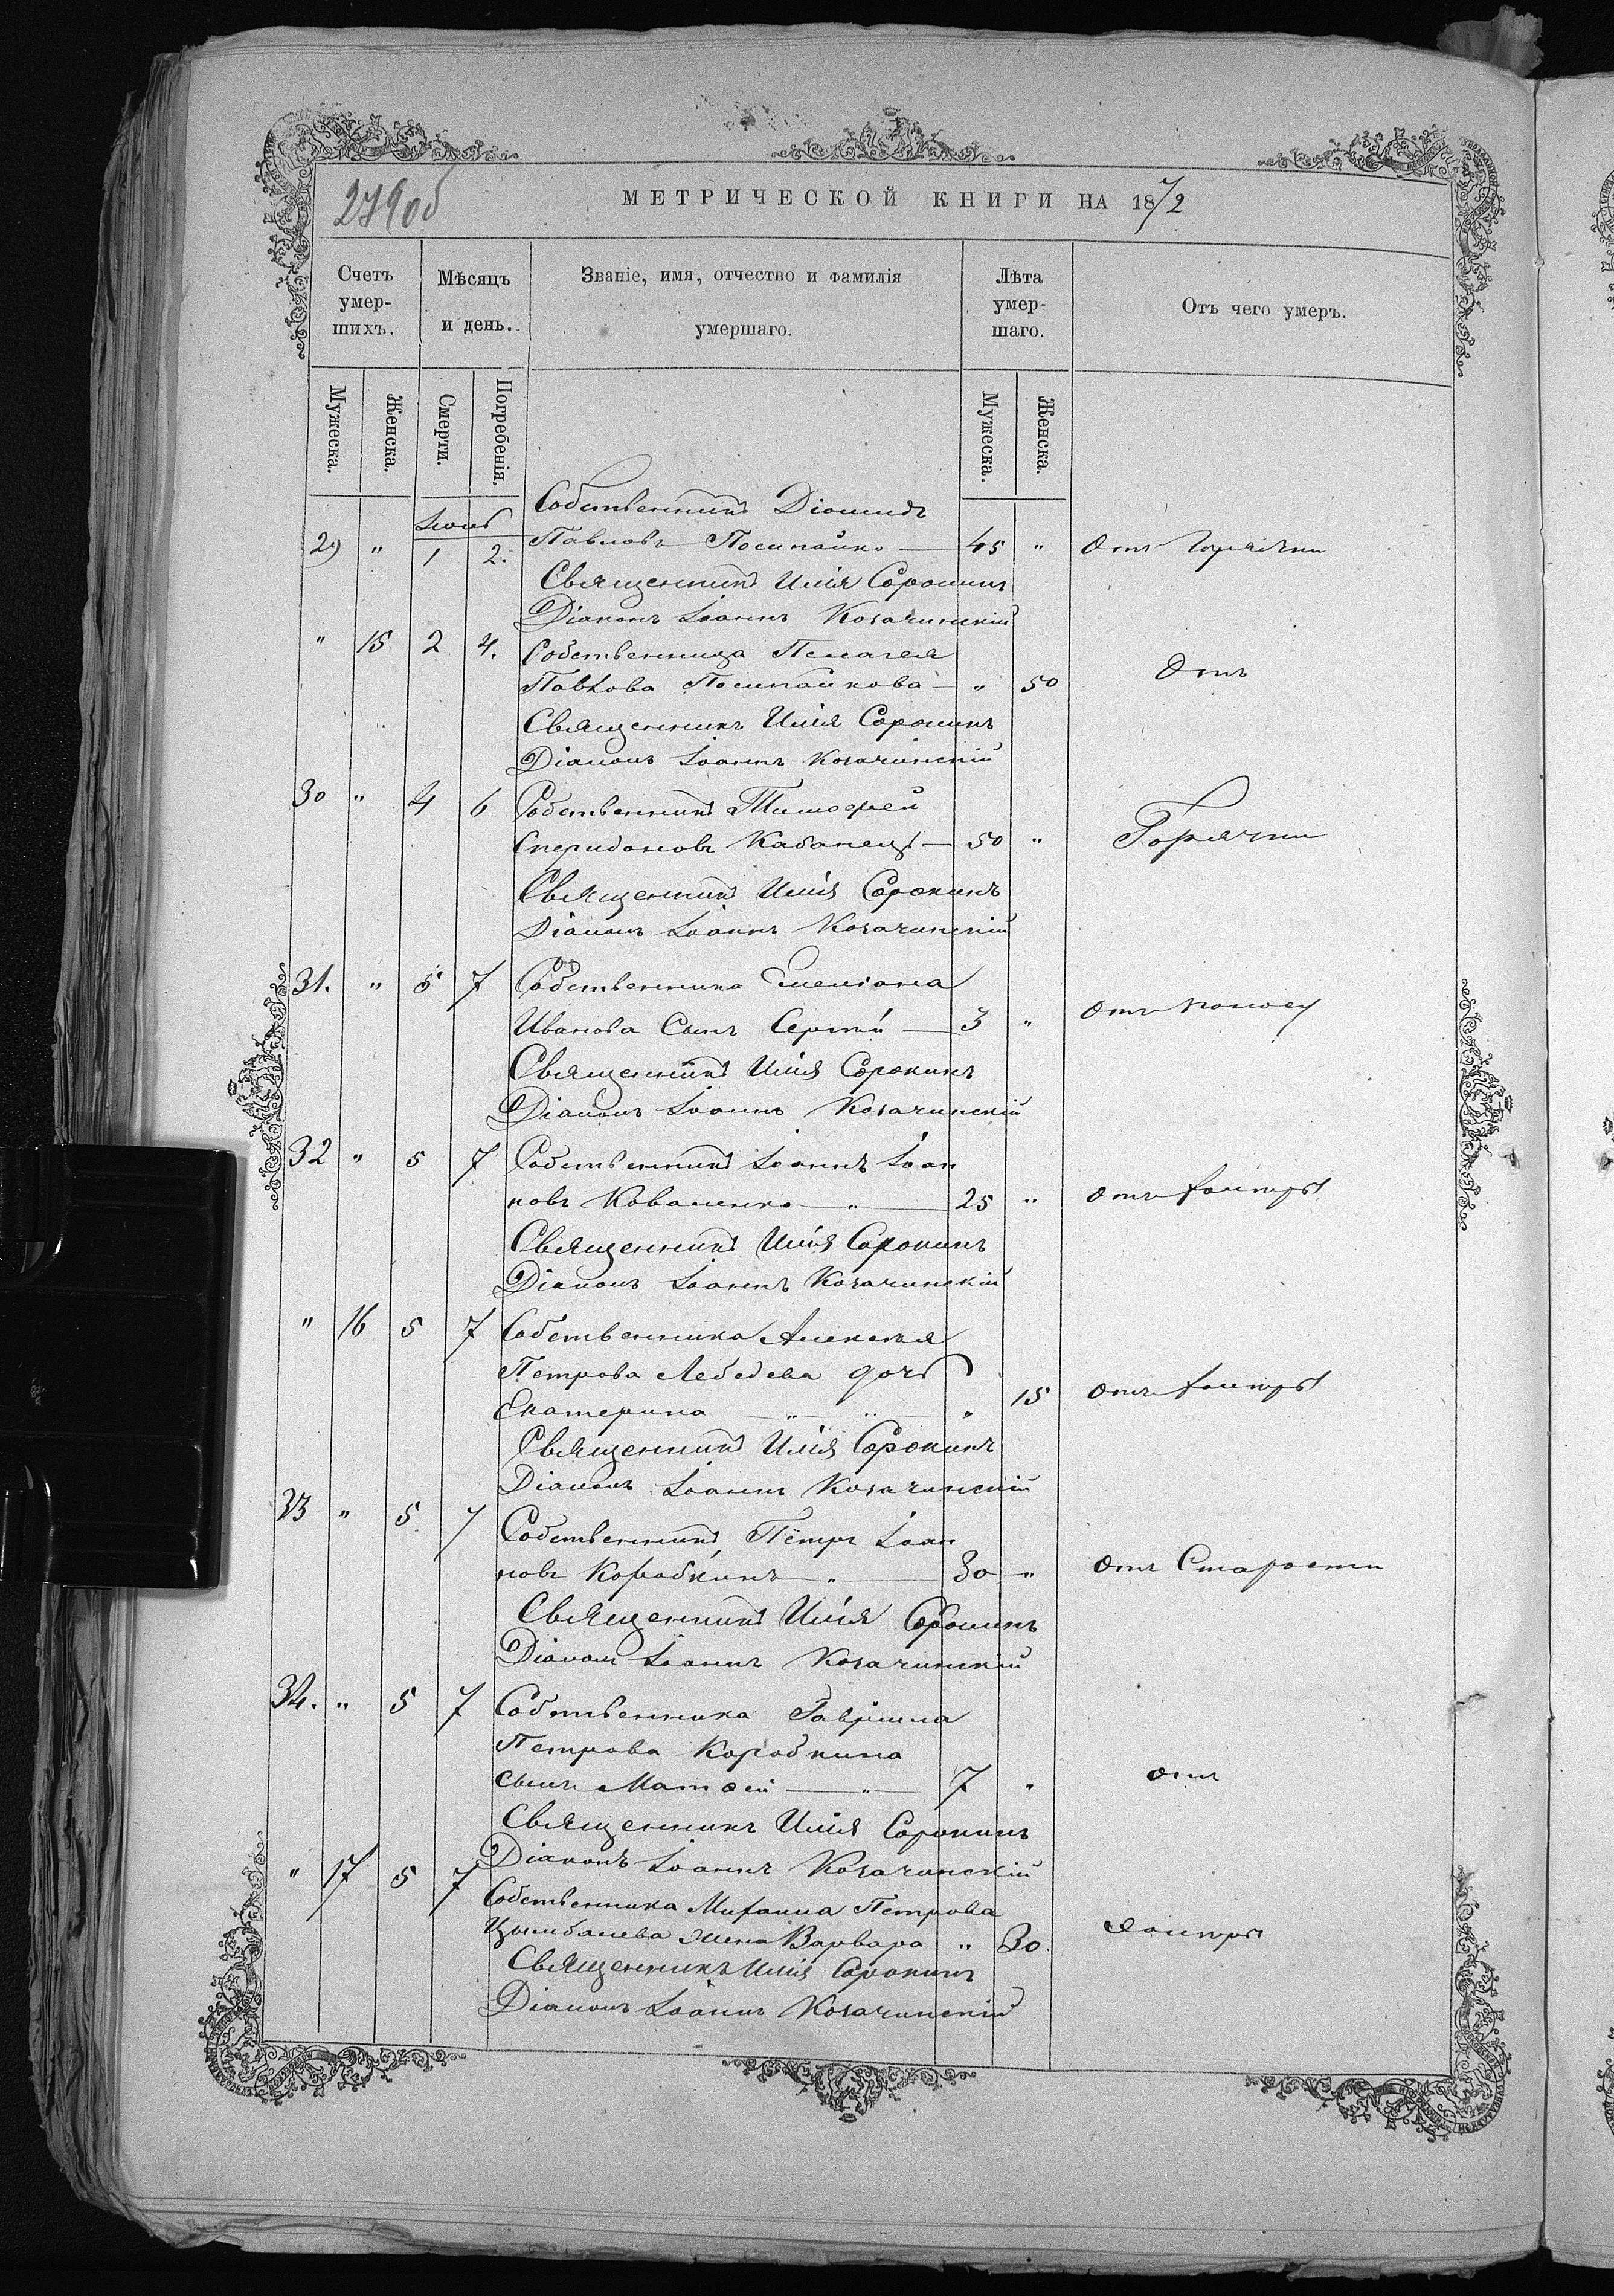 279об
МЕТРИЧЕСКОЙ КНИГИ НА 1872
Счетъ умер-шихъ.
Мѣсяцъ и день.
Званіе, имя, отчество и фамилія умершаго.
Лѣта умер-шаго.
Отъ чего умеръ.
Мужеска.
Женска.
Смерти.
Погребенія.
Мужеска.
Женска.
Собственникъ Діомидъ
29 " 1 2. Павловъ 45 " Отъ горячки
Священникъ Илія Сорокинъ
Діаконъ Іоаннъ Козачинскій
" 15 2 4. Собственница Пелагея
Павлова " 50 Отъ
Священникъ Илія Сорокинъ
Діаконъ Іоаннъ Козачинскій
30 " 4 6 Собственникъ Тимофей
Спиридоновъ Кабанецъ — 50 " Горячки
Священникъ Илія Сорокинъ
Діаконъ Іоаннъ Козачинскій
31. " 5 7 Собственника Емеліана
Иванова Сынъ Сергій — 3 " Отъ поносу
Священникъ Илія Сорокинъ
Діаконъ Іоаннъ Козачинскій
32 " 5 7 Собственникъ Іоаннъ Іоан
новъ Коваленко — " — 25 " Отъ холеры
Священникъ Илія Сорокинъ
Діаконъ Іоаннъ Козачинскій
" 16 5 7 Собственника Алексѣя
Петрова Лебедева дочь
Екатерина — " — " — " 15 Отъ холеры
Священникъ Илія Сорокинъ
Діаконъ Іоаннъ Козачинскій
33 " 5. 7 Собственникъ Петръ Іоан
новъ Коробкинъ — " — 30 " Отъ Старости
Священникъ Илія Сорокинъ
Діаконъ Іоаннъ Козачинскій
34. " 5 7 Собственника Гавріила
Петрова Коробкина
сынъ Матѳей — " — 7 " Отъ
Священникъ Илія Сорокинъ
Діаконъ Іоаннъ Козачинскій
" 17 5 7 Собственника Михаила Петрова
Цымбалева жена Варвара " 30. Холеры
Священникъ Илія Сорокинъ
Діаконъ Іоаннъ Козачинскій